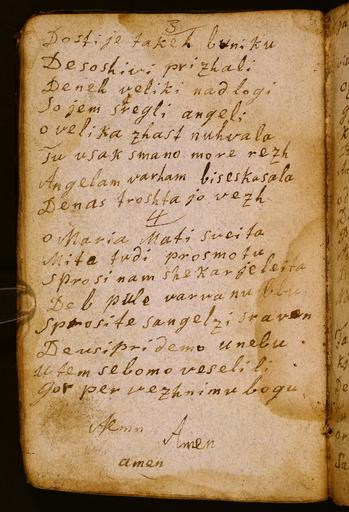 3
Dosti je takeh buniku
De so shivi prizhali
Denek veliki nadlogi
So jem stregli angeli
o velika zhast nu hvala
Tu vsak s mano more rezh
Angelam varham
De nas troshtajo vezh
4
o Maria Mati sveita
Mi te tudi prosmo tu
sprosi nam she kar je leita
De b pule varvanu
Sprosite s angelzi sraven
De usi pridemo u nebu
U tem se bomo veselili
gor per vezhnimu bogu
Amen
amen